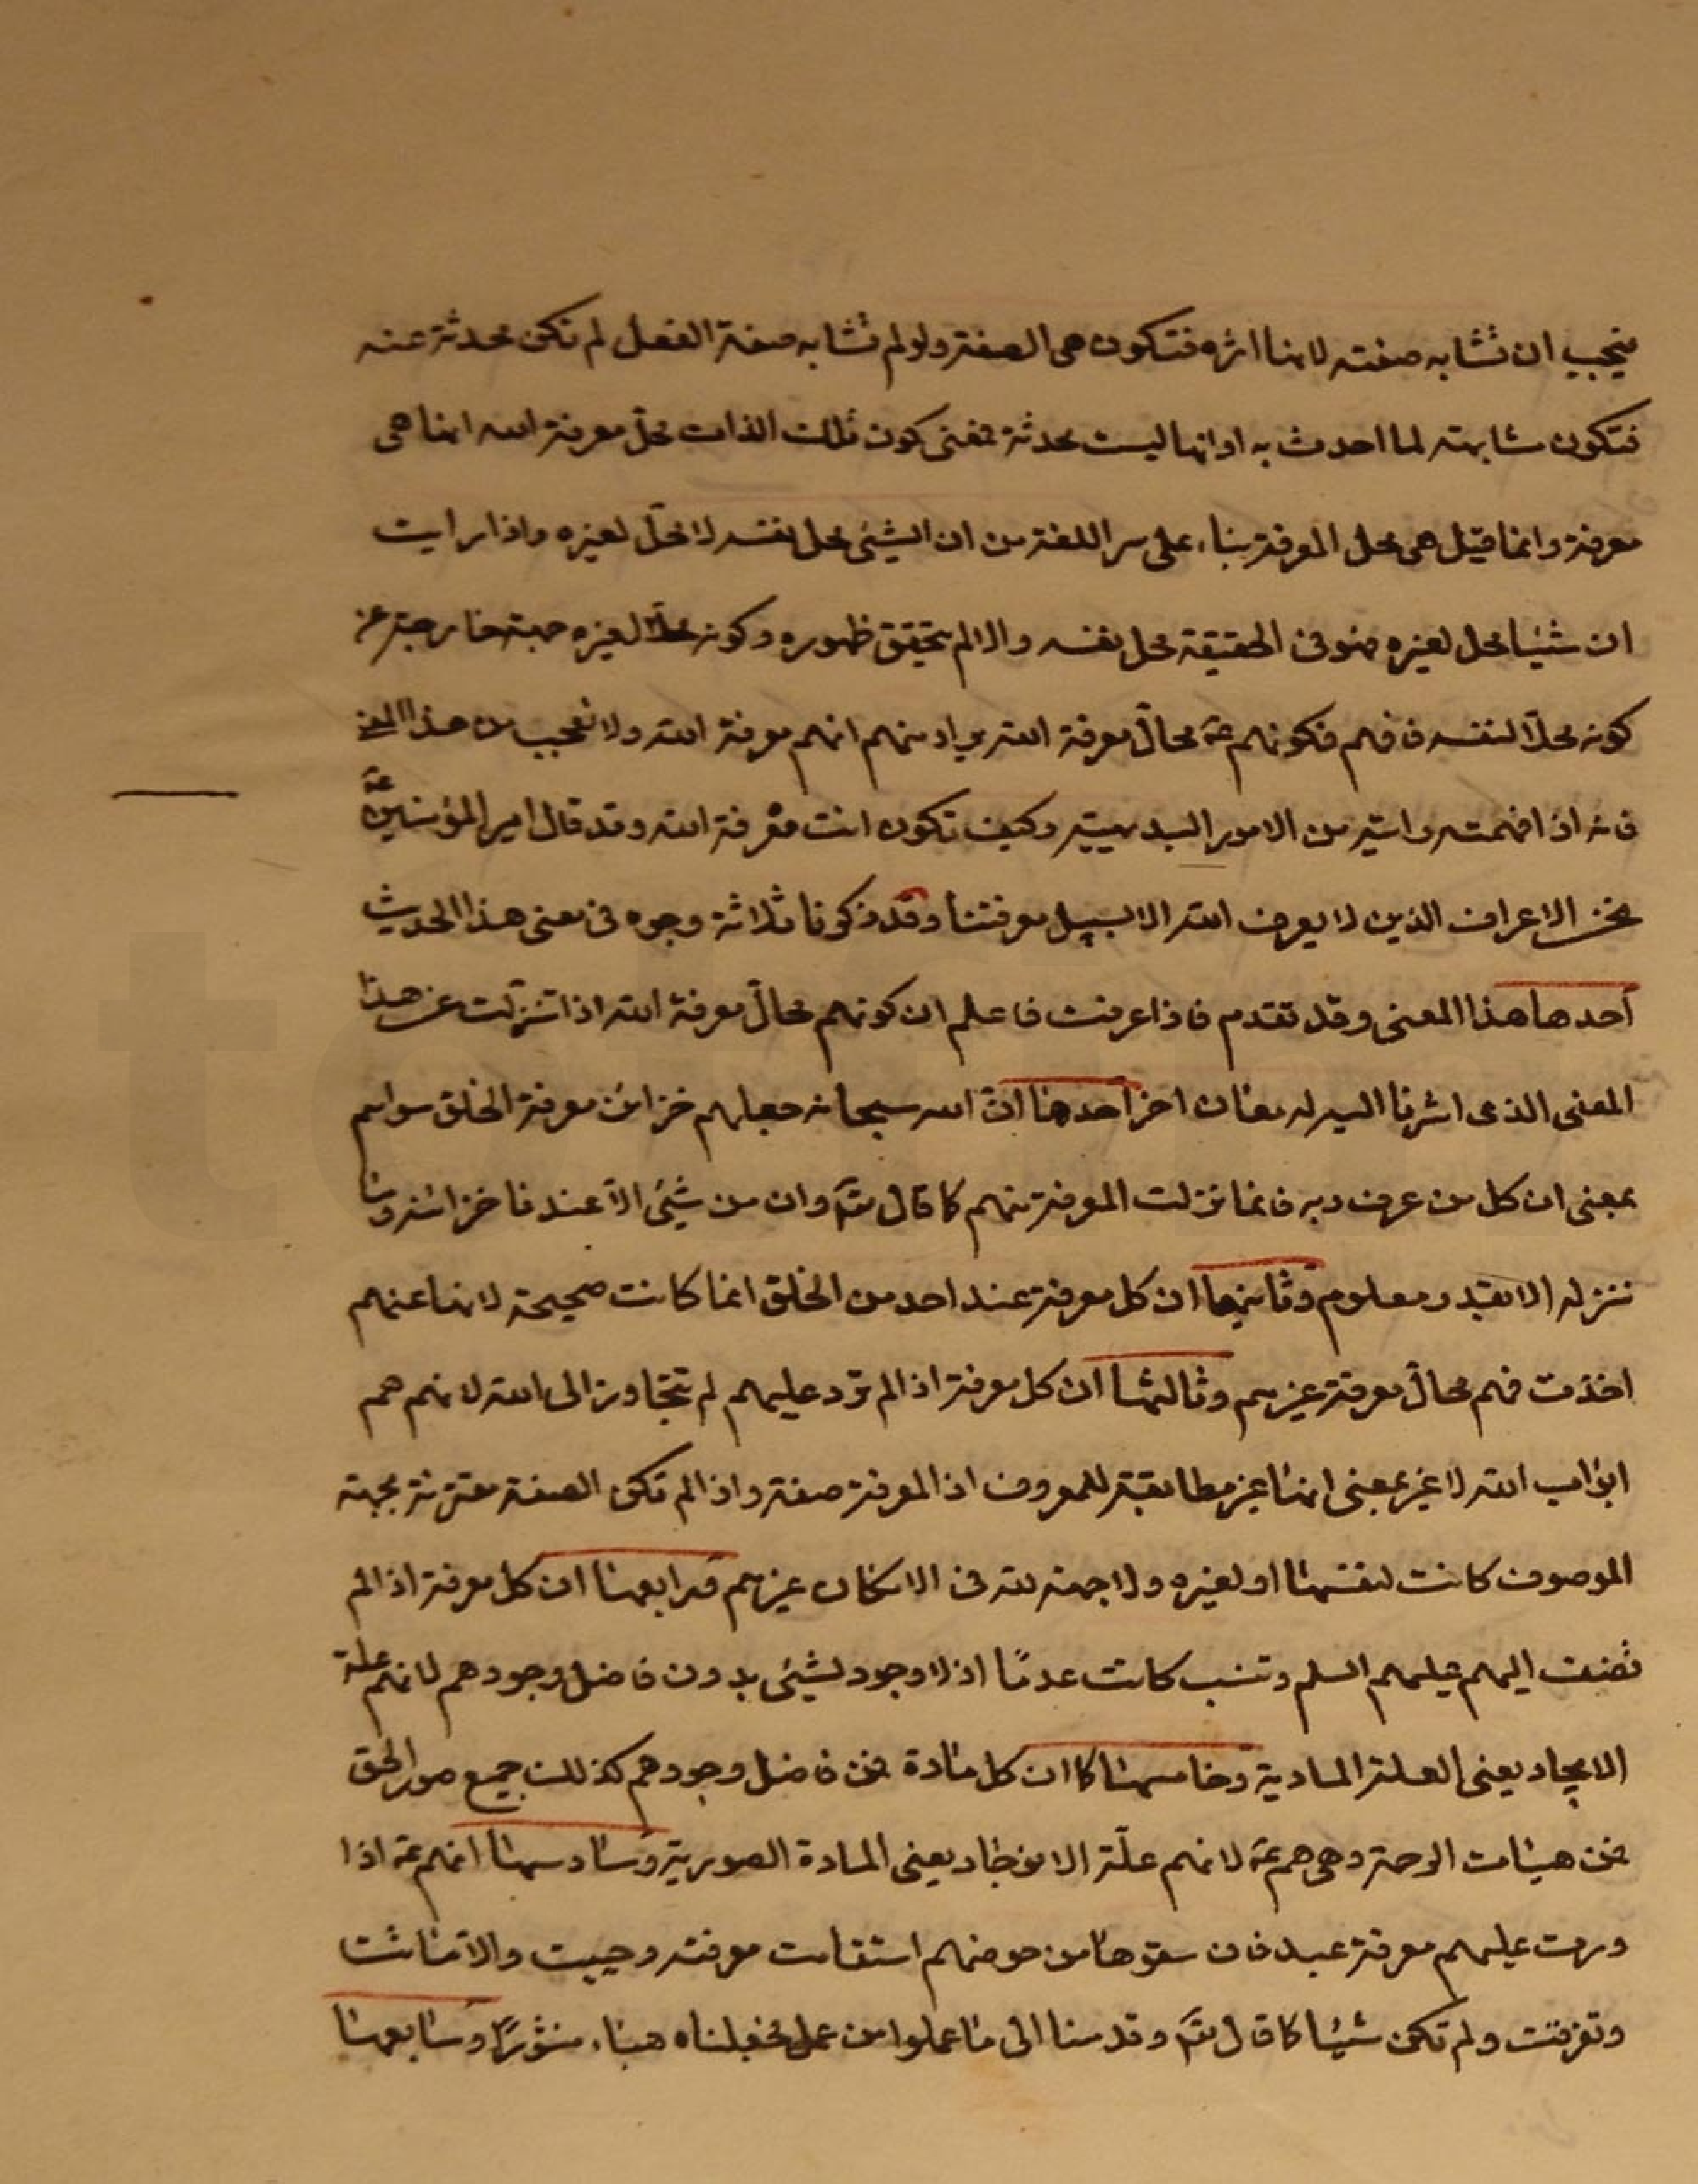 فيجب ان تشابه صفته لانها اثره فتكون هى الصفة ولو لم تشابه صفة الفعل لم تكن محدثة عنه
فتكون مشابهته لما احدث به او انها ليست محدثة فمعنى كون تلك الذات محلّ معرفة الله انها هى
معرفة وانما قيل هى محل المعرفة بناء على سر اللغة من ان الشئى محل نفسه لا محلّ لغيره واذا رايت
ان شيئا محل لغيره فهو فى الحقيقة محل نفسه والا لم يتحقق ظهوره وكونه محلّا لغيره جهة خارجة عن
كونه محلّا لنفسه فافهم فكونهم عۤ محالّ معرفة الله يراد منهم انهم معرفة الله ولا تعجب من هذا المعنى
فانه اذا فهمته رايته من الامور البديهية وكيف تكون انت معرفة الله وقد قال امير المؤمنين عۤ
نحن الاعراف الذين لا يعرف الله الا بسبيل معرفتنا وقد ذكرنا ثلاثة وجوه فى معنى هذا الحديث
احدها هذا المعنى وقد تقدم فاذا عرفت فاعلم ان كونهم محالّ معرفة الله اذا تنزّلت عن هذا
المعنى الذى اشرنا اليه له معان اخر احدها انّ الله سبحانه جعلهم خزائن معرفة الخلق سواهم
بمعنى ان كل من عرف ربه فانما نزلت المعرفة منهم كما قال تعۤ وان من شيئى الّا عندنا خزائنه وما
ننزله الا بقدر معلوم وثانيها ان كل معرفة عند احد من الخلق انما كانت صحيحة لانها عنهم
اخذت فهم محالّ معرفة غيرهم وثالثها ان كل معرفة اذا لم ترد عليهم لم تتجاوز الى الله لانهم هم
ابواب الله لا غير بمعنى انها غير مطابقة للمعروف اذ المعرفة صفة واذا لم تكن الصفة مقترنة بجهة
الموصوف كانت لنفسها او لغيره ولا جهة لله فى الامكان غيرهم ورابعها ان كل معرفة اذا لم
تضف اليهم عليهم السلم وتنسب كانت عدمًا اذ لا وجود لشيئى بدون فاضل وجودهم لانهم علة
الايجاد يعنى العلة المادية وخامسها كما ان كل مادة فمن فاضل وجودهم كذلك جميع صور الحق
فمن هيئات الرحمة وهى هم عۤ لانهم علّة الانوجاد يعنى المادة الصورية وسادسها انهم عۤ اذا
وردت عليهم معرفة عبد فان سقوها من حوضهم استقامت معرفته وحييت والا ماثت
وتفرقت ولم تكن شيئا كما قال تعۤ وقدمنا الى ما عملوا من عمل فجعلناه هباء منثورًا وسابعها